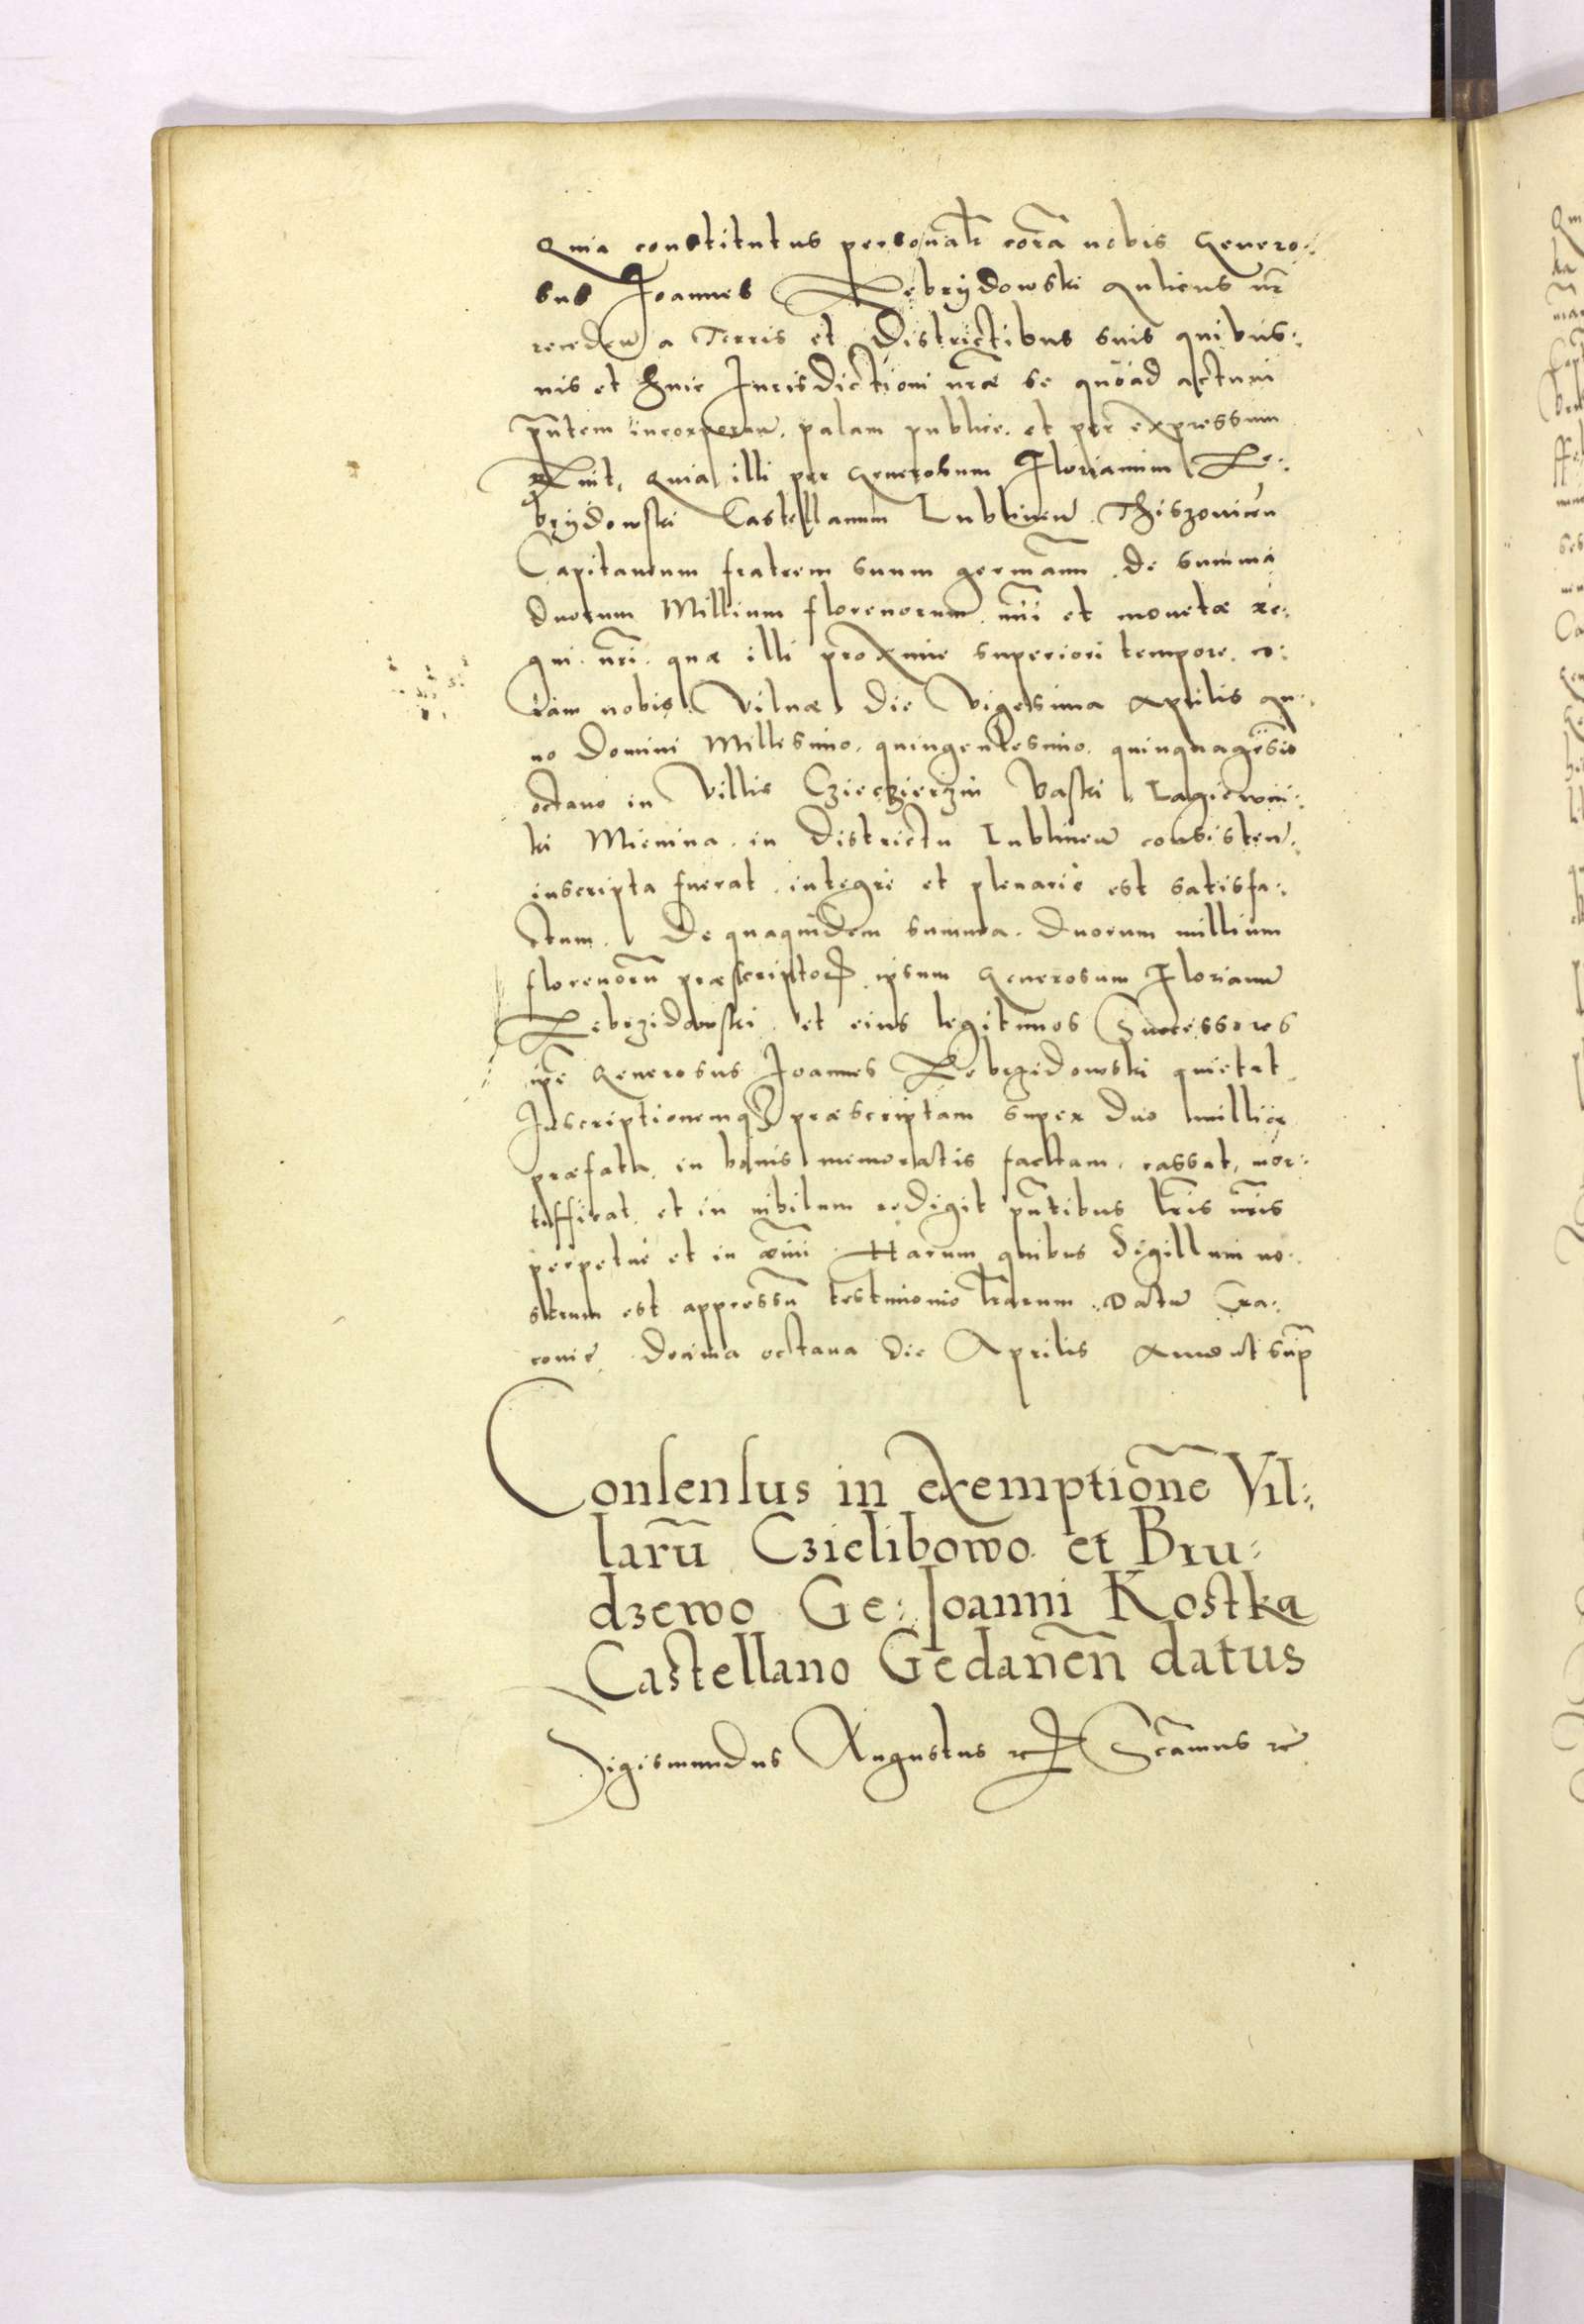 Quia constitutus personalr̄ corā nobis Genero:
sus Joannes Zebrzÿdowski Aulicus nr̄
receden̄ a Terris et Districtibus suis quibus:
vis et huic Jurisdictioni nr̄æ se quoad actum
pn̄tem incorporan̄. palam publice. et per expressum
Quia illi per Generosum Florianum Ze:
brzÿdowski Castellanum Lublinen̄ Thiszovicen̄
Capitaneum fratrem suum germanū de summa
duorum Millium florenorum. et monetæ re:
gni nr̄i. quæ illi proxime superiori tempore. co:
ram nobis Vilnæ die Vigesima Aprilis an:
no Domini Millesimo. quingentesimo. quinquagesīo
octavo in Villis Czieczierzin Vaski Lagiewni:
ki Mienina. in Districtu Lublinen̄ consisten̄.
inscripta fuerat. integre et plenarie est satisfa:
ctum. De quaquidem summa. duorum millium
florenorū præscriptorꝝ ipsum Generosum Florianū
Zebrzidowski et eius legitimos Successores
ipē Generosus Joannes Zebrzidowski quietat
Inscriptionemqꝫ præscriptam super duo millia
præfata. in bonis memoratis factam. cassat, mor:
tifficat. et in nihilum redigit pn̄tibus lr̄is nr̄is
perpetue et in ævū. Harum quibus Sigillum no:
strum est appressū testimonio lr̄arum. Datū Cra:
covie. Decima octava die Aprilis Anno ut supr̄
Consensus in exemptionē Vil:
larū Czielibowo et Bru:
dzewo Ge: Joanni Kostka
Castellano Gedanēn datus
Sigismundus Augustus rꝝ Sc̄amus rc̄